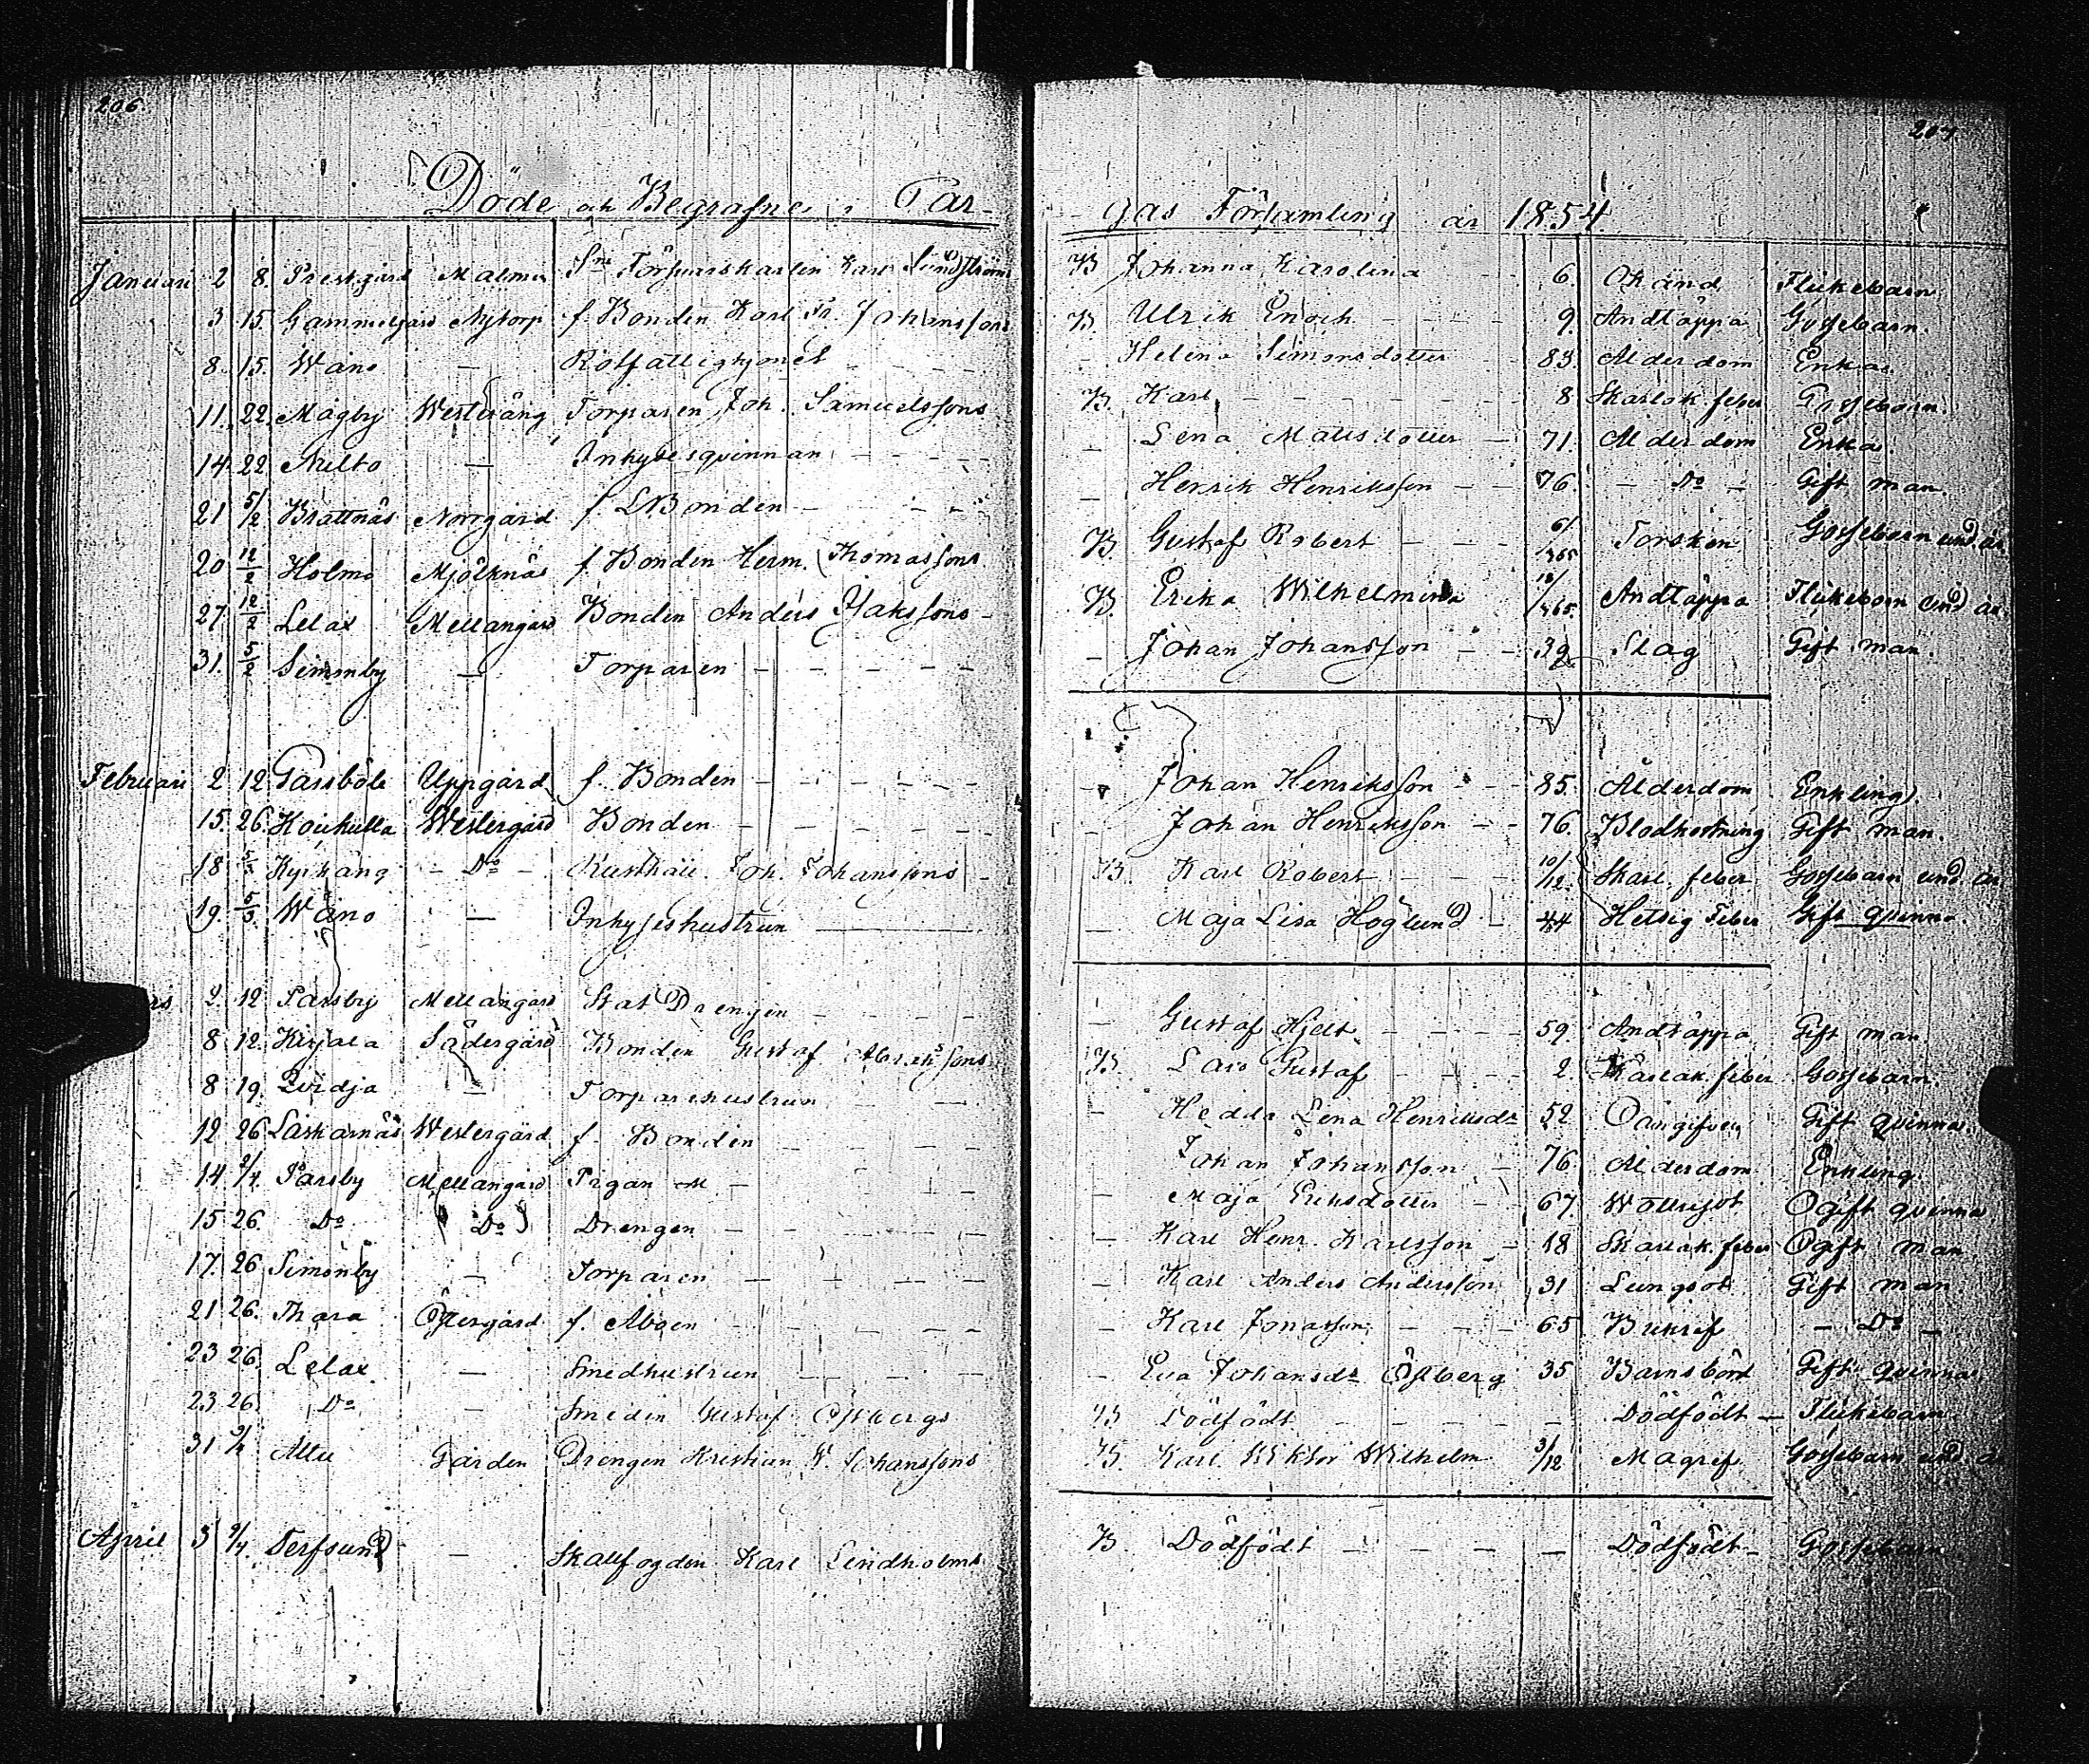 206
207
Döde och Begrafne i Par-
gas Församling år 1854.
Januari 2 8. Prestgård Malmen Sne Försvarskarlen Karl Lindströms B Johanna Karolina 6. Okänd Flickebarn
3 15. Gammelgård Nytorp f. Bonden Karl Fr. Johanssons B. Ulrik Enoch - - - 9. Andtäppa Gossebarn.
8. 15. Wäno — Rotfattighjonet - Helena Simonsdotter 83. Ålderdom Enka.
11. 22. Mågby Westeräng Torparen Joh. Samuelssons B. Karl - - - 8 Skarlak. feber Gossebarn.
14. 22 — Inhysesqvinnan - - - Lena Matts dotter — 71. Ålderdom Enka.
21 5/2 Brattnäs Norrgård f. L.Bonden - - - Henrik Henriksson - - 76. - Do - Gift man.
20 12/2 Holmo Mjölknäs f. Bonden Herm. Thomassons B. Gustaf Robert - - - 61/365 Torsken Gossebarn und. år
27. 12/2 Lelax Mellangård Bonden Anders Isakssons - B. Erika Wilhelmina 18/365. Andtäppa Flickebarn und år.
31. 5/2 Simonby — Torparen - - - - Johan Johansson - - 39 Slag Gift man.
Februari 2 12 Parsböle Uppgård f. Bonden - - - Johan Henriksson - - 85. Ålderdom Enkling.
15. 26. Koiukulla Westergård Bonden - - - Johan Henriksson - - 76. Blodhostning Gift man.
18 5/3 Kyrkäng - Do - Rusthåll. Joh. Johanssons - B. Karl Robert - - - 10/12. Skarl. feber Gossebarn und. år
19. 5/3 Wäno — Inhyseshustrun — Maja Lisa Höglund - 44 Hetsig Feber Gift qvinna.
rs 2. 12 Parsby Mellangård Stat Drengen - - - Gustaf Hjelt - - - 59. Andtäppa Gift man
8 12. Kirjala Södergård Bonden Gustaf Abrahssons B. Lars Gustaf - - - 2. Skarlak. feber Gossebarn.
8 19. Qvidja — Torparehustrun - Hedda Lena Henriksdr 52 Oangifven Gift qvinna.
12 26 Laskarnäs Westergård f. Bonden - Johan Johansson - 76 Ålderdom Enkling.
14 9/4. Parsby Mellangård Pigan - Maja Eriksdotter - 67. Wattusot Ogift qvinna
15 26. Do (Do) Drengen - - - Karl Henr. Karlsson - 18 Skarlak. feber Ogift man
17. 26 Simonby — Torparen - - - Karl Anders Andersson 31 Lungsot Gift man
21 26. Thara Östergård f. Åboen - - - Karl Jonasson - - - 65 Bukref - Do -
23 26. Lelax. — Smedhustrun - - - Eva Johansdr Östberg 35 Barnsbörd Gift qvinna
23 26. Do - Smeden Gustaf Östbergs B Dödfödt - - - Dödfödt - Flickebarn
31 9/4 Attu Gården Drengen Kristian W. Johanssons B. Karl Wiktor Wilhelm 3/12 Magref Gossebarn und. år
April 3 9/4. Terfsund — Skallfogden Karl Lindholms B. Dödfödt - - - Dödfödt - Gossebarn